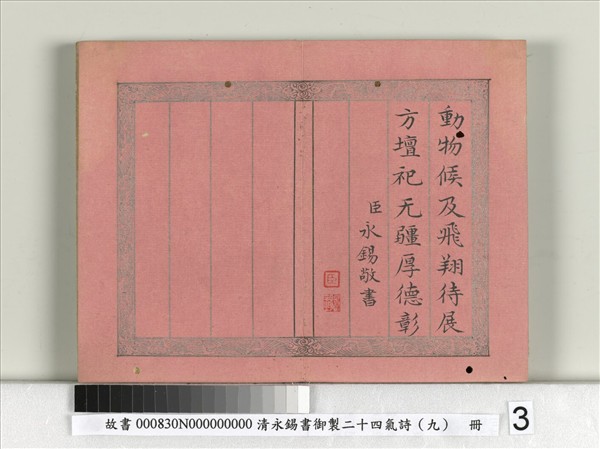 動物候及飛翔待展
方壇祀无疆厚德彰
臣永錫敬書
故書 000830N000000000 清永錫書御製二十四氣詩（九） 冊
3